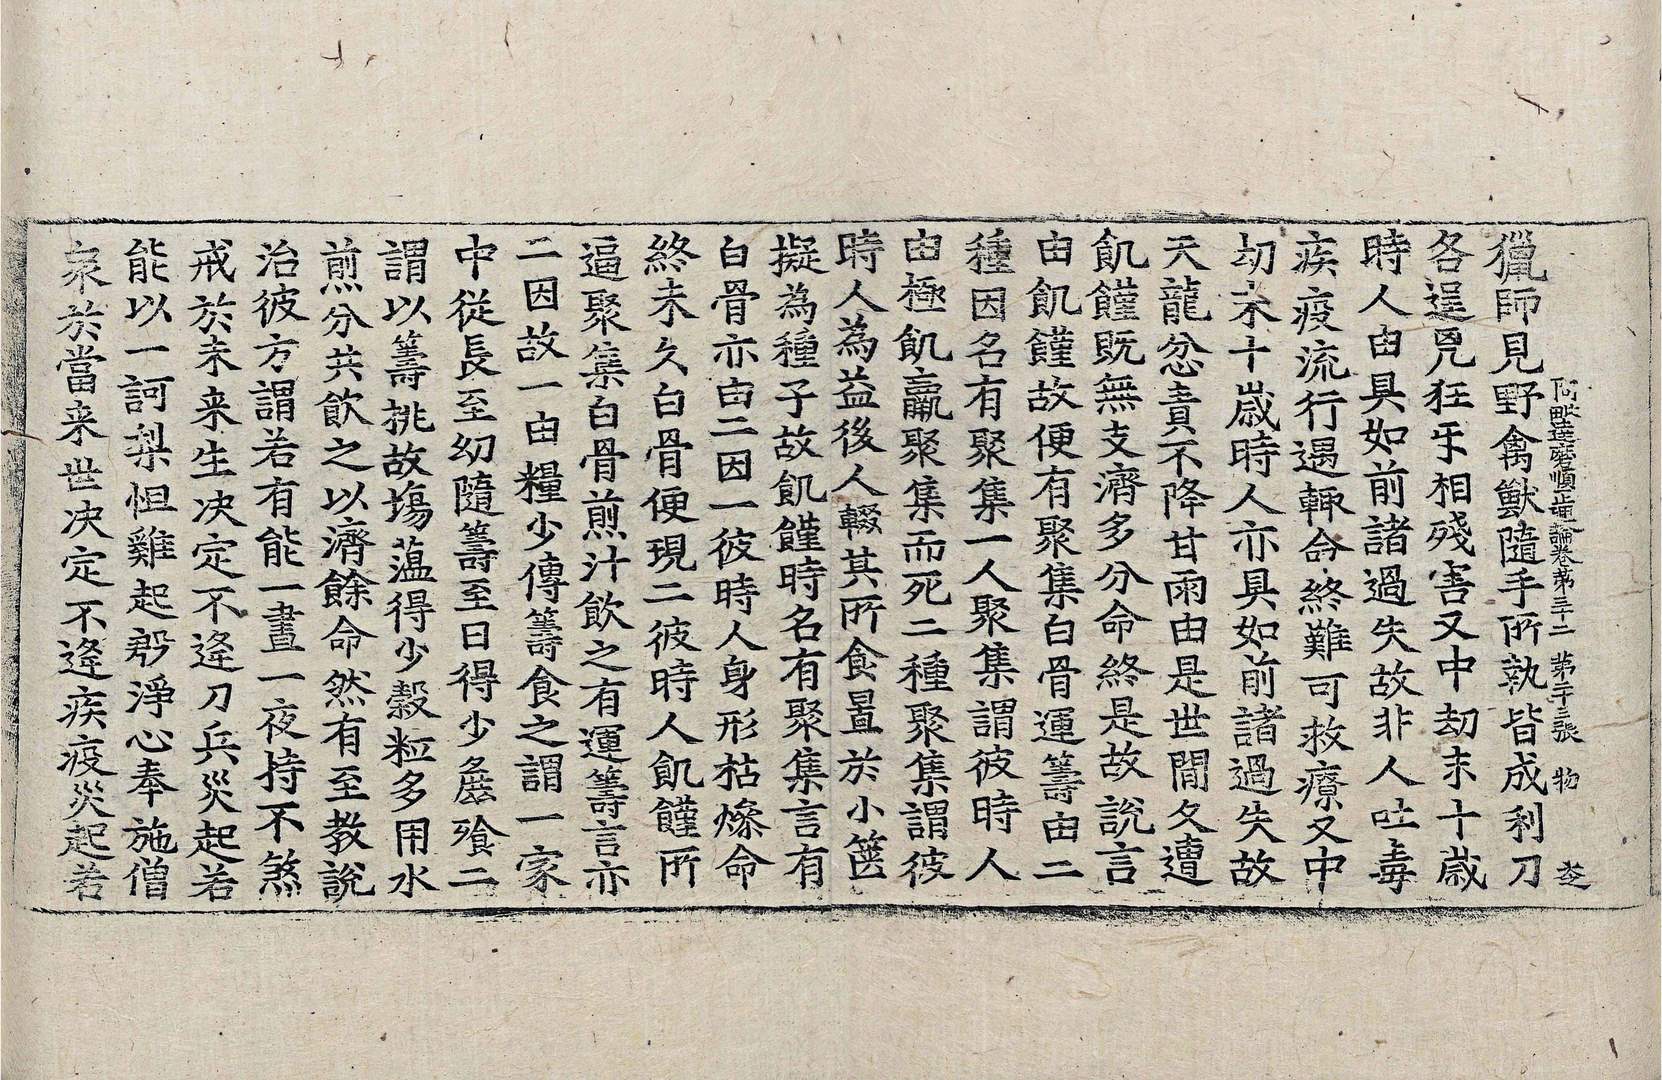 阿毗達磨順正理論卷第三十二 第二十三張 物
獵師見野禽獸隨手所執皆成利刀
各逞兇狂㸦相殘害又中劫末十歲
時人由具如前諸過失故非人吐毒
疾疫流行遇輒命終難可救療又中
劫末十歲時人亦具如前諸過失故
天龍忿責不降甘雨由是世閒久遭
飢饉既無支濟多分命終是故說言
由飢饉故便有聚集白骨運籌由二
種因名有聚集一人聚集謂彼時人
由極飢羸聚集而死二種聚集謂彼
時人為益後人輟其所食置於小篋
擬為種子故飢饉時名有聚集言有
白骨亦由二因一彼時人身形枯燥命
終未久白骨便現二彼時人飢饉所
逼聚集白骨煎汁飲之有運籌言亦
二因故一由糧少傳籌食之謂一家
中從長至幼隨籌至日得少麁飡二
謂以籌挑故場蘊得少穀粒多用水
煎分共飲之以濟餘命然有至教說
治彼方謂若有能一晝一夜持不煞
戒於未來生决定不逢刀兵災起若
能以一訶梨怛雞起慇淨心奉施僧
衆於當来世决定不逢疾疫災起若